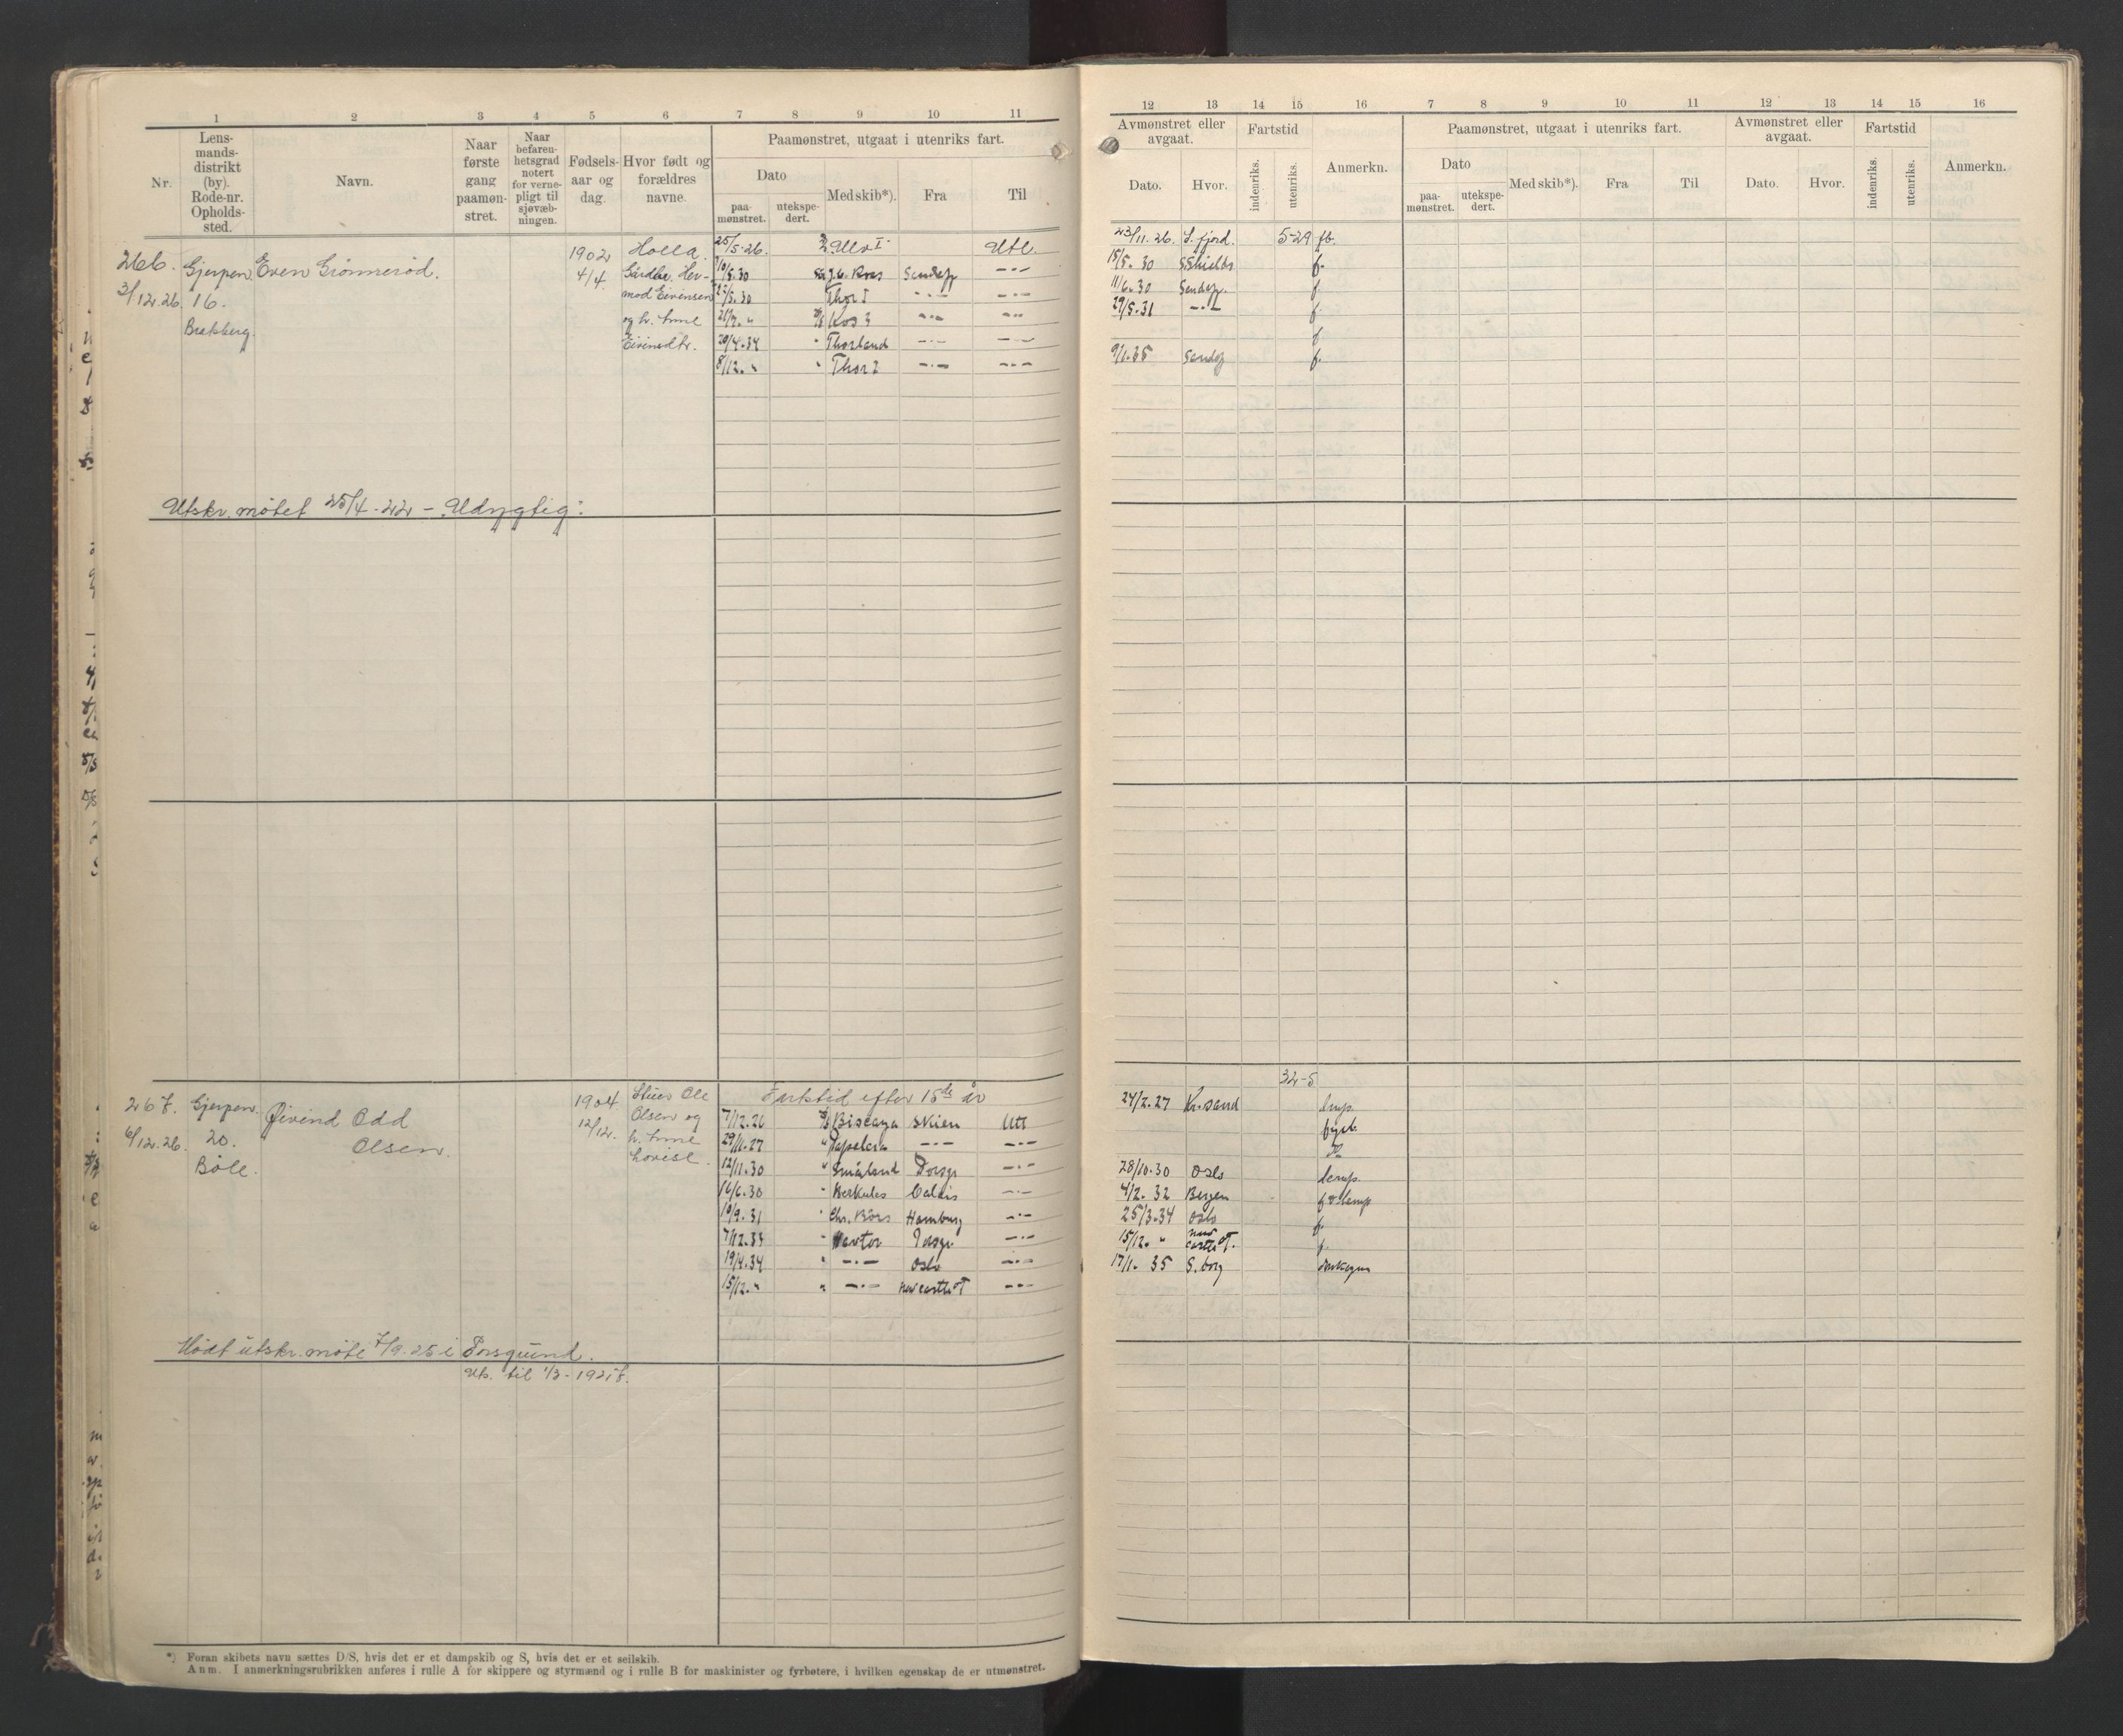 1 2 3 4 5 6 7 8 9 10 11
Nr.
Lens-
mands-
distrikt
(by).
Rode-nr.
Opholds-
sted.
Navn.
Naar
første
gang
paamøn-
stret.
Naar
befaren-
hetsgrad
notert
for verne-
pligt til
sjøvæb-
ningen.
Fødsels-
aar og
dag.
Hvor født og
forældres
navne.
Paamønstret, utgaat i utenriks fart.
Dato
paa-
mønstret.
utekspe-
dert.
Med skib*).
Fra
Til
266. Gjerpen Even Grønnerød. 1902 Holla. 25/5-26. Ulv I Utl.
3/12.26. 16. 4/4. Gårdbr. Her- /5.30 Sandefj -"-
Brekberg. mod Eivensen /5.30 Thor I -"- -"-
og h. Anne 21/7. " Kos 3 -"- -"-
Eivensdtr. 20/4.34 " Thorland -"- -"-
8/12. " " Thor I -"- -"-
Utskr. møtet 25/4-22 - Udygtig:
267. Gjerpen. Øivind Odd 1904 Ole Farktid efter 15de år
6/12.26. 20. Olsen. 12/12. Olsen og 7/12.26 Biscaya Skien Utl
Bøle. h. Anne 29/11.27 " -"- -"-
Lovise. 12/11.30 " Småland Porsgr -"-
16/6.30 " Herkules Calais -"-
10/9.31 " Chr. Börs Hamburg -"-
7/12.33 " Porsgr -"-
19/4.34 " -"- Oslo -"-
15/12. " " -"- Newcastle oT -"-
Mødt utskr. møte 7/9.25 i Porsgrund.
Uts. til 1/3-1927.
*) Foran skibets navn sættes D/S, hvis det er et dampskib og S, hvis det er et seilskib.
Anm. I anmerkningsrubrikken anføres i rulle A for skippere og styrmænd og i rulle B for maskinister og fyrbøtere, i hvilken egenskap de er utmønstret.
12 13 14 15 16 7 8 9 10 11 12 13 14 15 16
Avmønstret eller
avgaat.
Dato.
Hvor.
Fartstid
indenriks.
utenriks.
Anmerkn.
Paamønstret, utgaat i utenriks fart.
Dato
paa-
mønstret.
utekspe-
dert.
Med skib*).
Fra
Til
Avmønstret eller
avgaat.
Dato.
Hvor.
Fartstid
indenriks.
utenriks.
Anmerkn.
23/11.26. S.fjord. 5-29 fb.
15/5.30 S.Shields f.
11/6.30 Sandefj. f.
29/5.31 -"- f.
f
9/1.35 Sandefj f.
32-5
24/2.27 Kr.sand lemp.
fyrb.
Do
28/10.30 Oslo lemp.
4/2.32 Bergen f & lemp
25/3.34 Oslo f.
15/12. " New castle oT. f.
17/1.35 S.borg